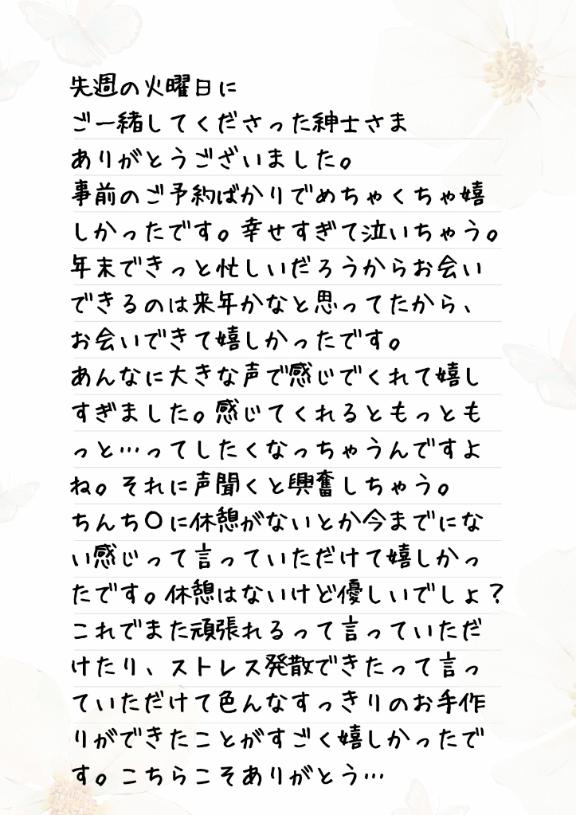 先週の火曜日に
ご一緒してくださった紳士さま
ありがとうございました。
事前のご予約ばかりでめちゃくちゃ嬉
しかったです。幸せすぎて泣いちゃう。
年末できっと忙しいだろうからお会い
できるのは来年かなと思ってたから、
お会いできて嬉しかったです。
あんなに大きな声で感じでくれて嬉し
すぎました。感じてくれるともっとも
っと…ってしたくなっちゃうんですよ
ね。それに声聞くと興奮しちゃう。
ちんち〇に休憩がないとか今までにな
い感じって言っていただけて嬉しかっ
たです。休憩はないけど優しいでしょ？
これでまた頑張れるって言っていただ
けたり、ストレス発散できたって言っ
ていただけて色んなすっきりのお手作
りができたことがすごく嬉しかったで
す。こちらこそありがとう…